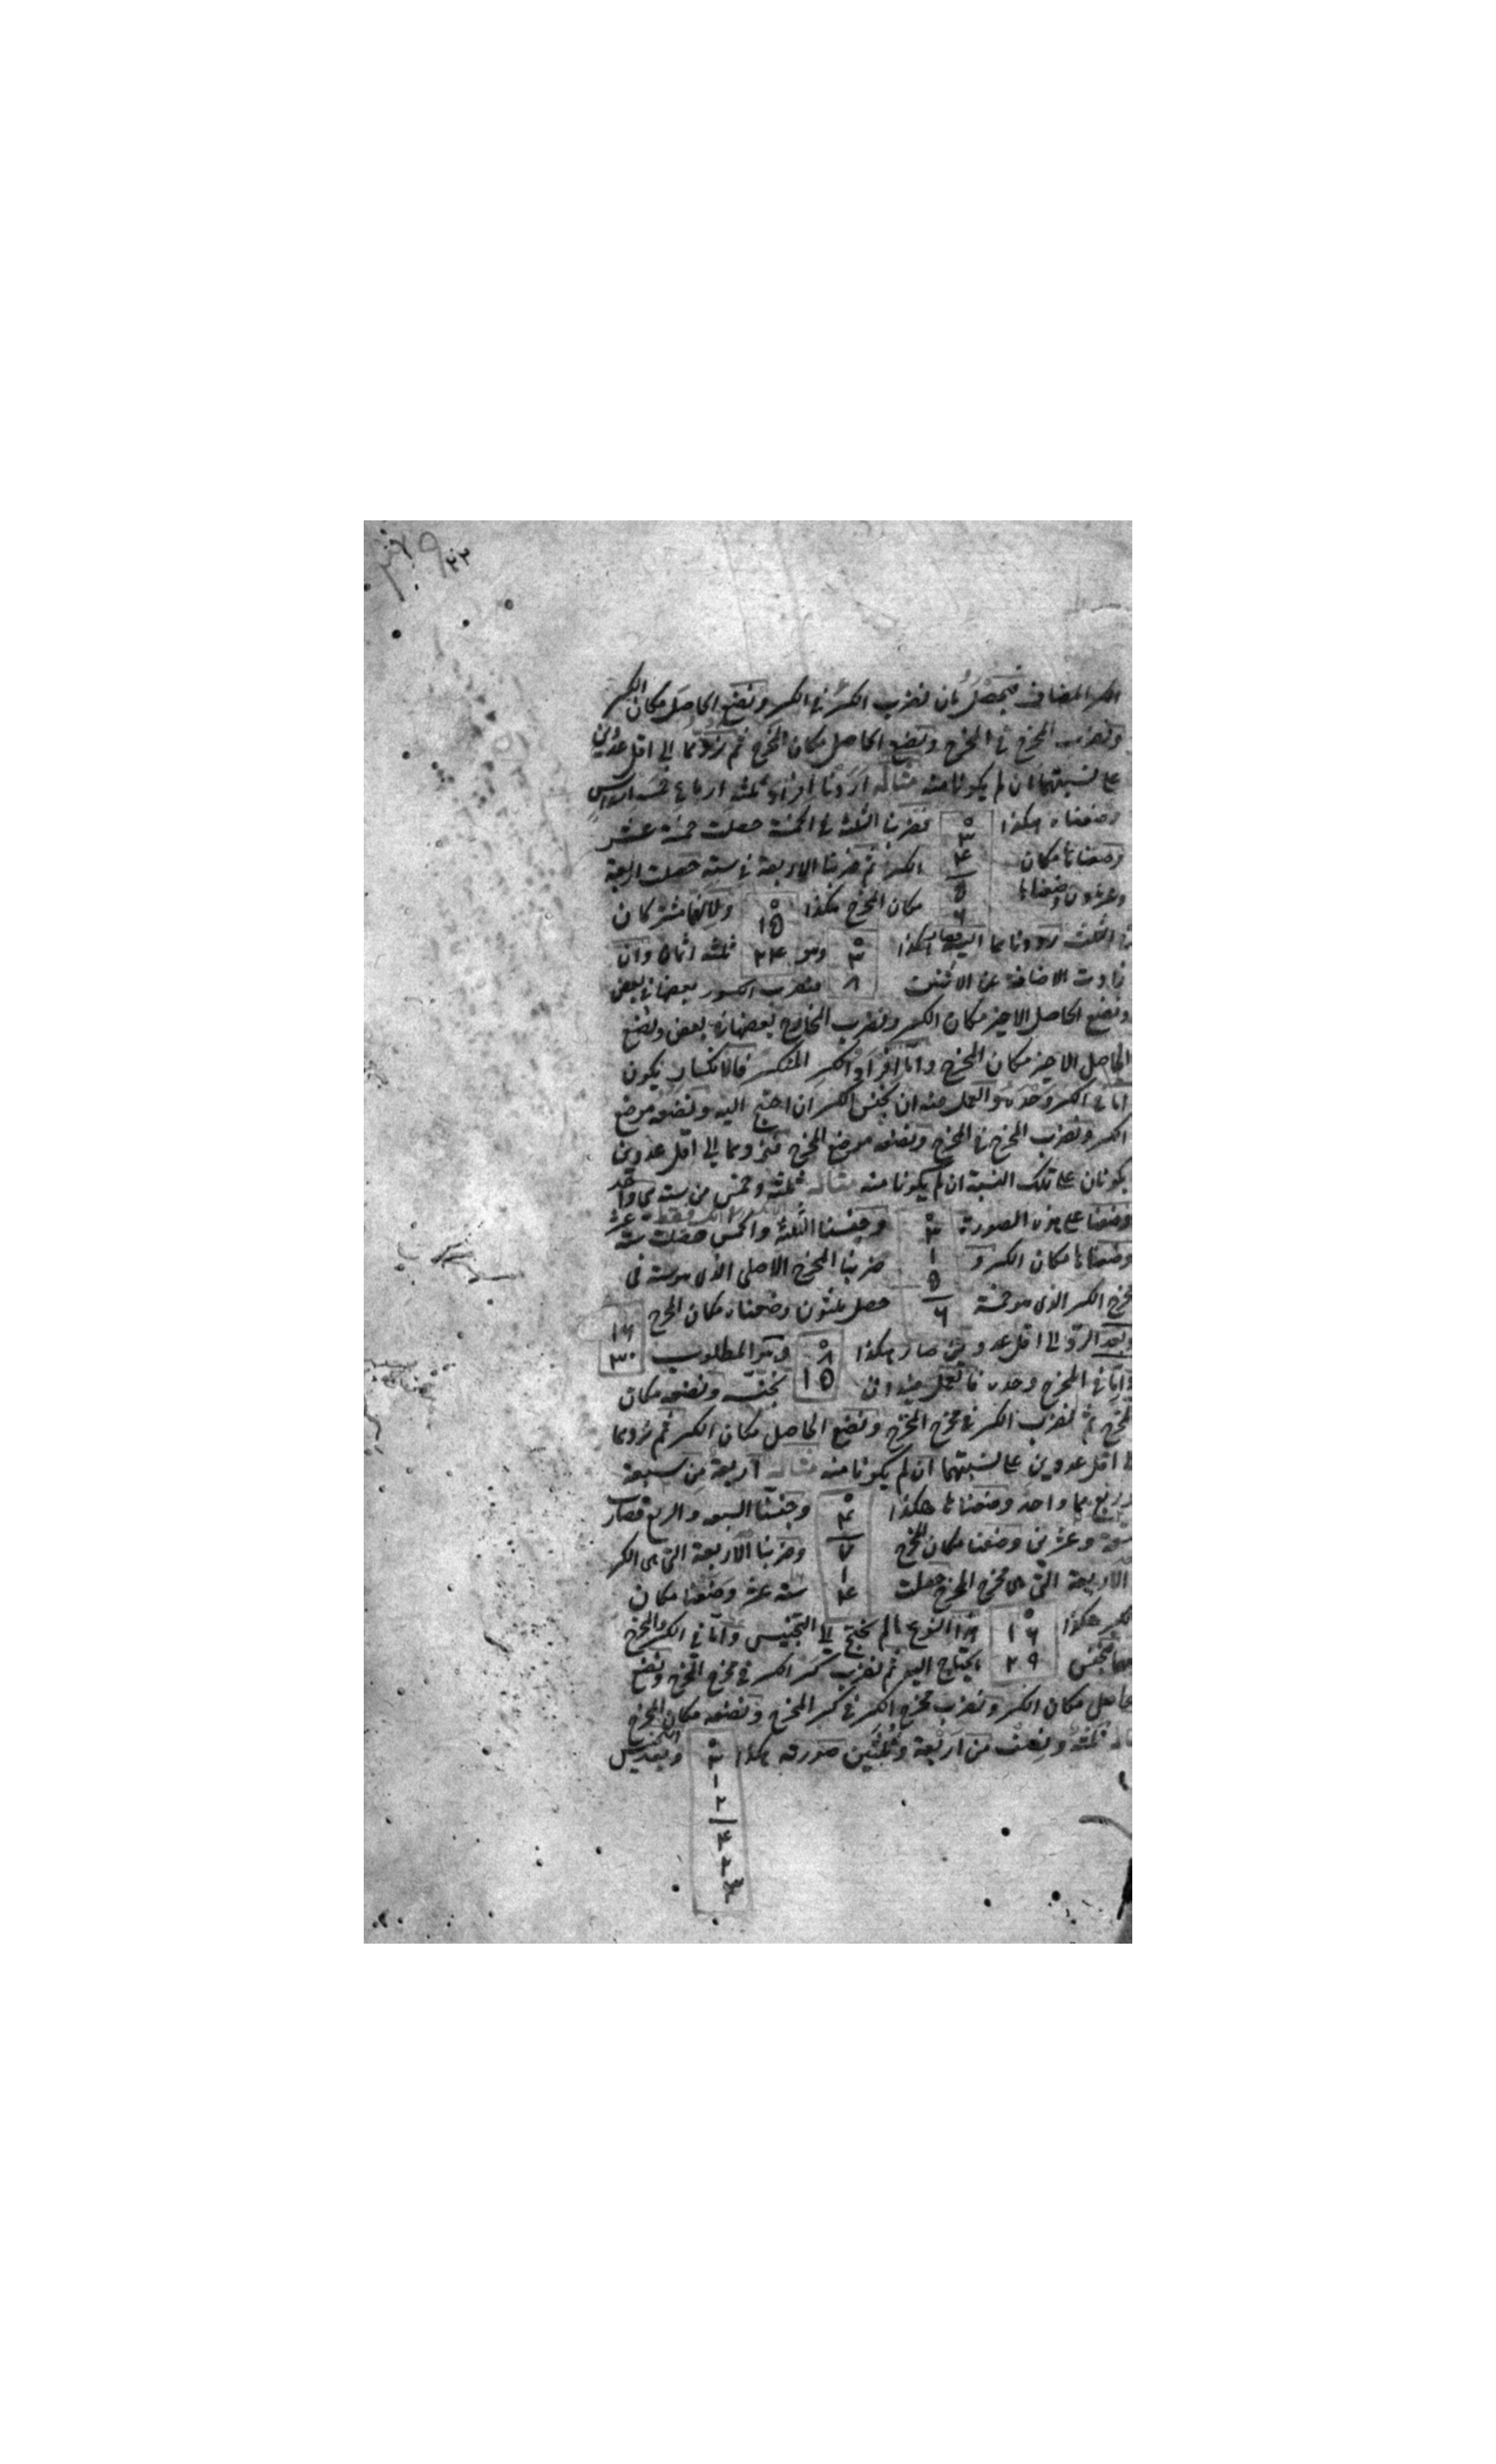 الكسر المضاف فيحصل بان نضرب الكسر في الكسر ونضع الحاصل مكان الكسر
ونضرب المخرج في المخرج ونضع الحاصل مكان المخرج ثم نردهما الى اقل عددين
على نسبتهما ان لم يكونا منه مثاله اردنا افراد ثلثة ارباع خمسة اسداس
وضعناه هكذا ٠ ٣ ٤ ٥ ٦ فضربنا الثلثة في الخمسة حصلت خمسة عشر
وضعناها مكان الكسر ثم ضربنا الاربعة في ستة حصلت اربعة
وعشرون وضعناها مكان المخرج هكذا ٠ ١٥ ٢٤ ولانهما مشتركان
في الثلث رددناهما اليه فصار هكذا ٠ ٣ ٨ وهو ثلثة اثمان وان
زادت الاضافة عن الاثنين فنضرب الكسور بعضها في بعض
ونضع الحاصل الاخير مكان الكسر ونضرب المخارج بعضها في بعض ونضع
الحاصل الاخير مكان المخرج واما افراد الكسر المنكسر فالانكسار يكون
اما في الكسر وحده والعمل فيه ان نجنس الكسر ان احتيج اليه ونضعه موضع
الكسر ونضرب المخرج في المخرج ونضعه موضع المخرج فنردهما الى اقل عددين
يكونان على تلك النسبة ان لم يكونا منه مثاله ثلثة وخمس من ستة هي واحد
وضعنا على هذه الصورة ٠ ٣ ١ ٥ ٦ وجنسنا الثلثة والخمس حصلت ستة عشر
وضعناها مكان الكسر و ضربنا المخرج الاصلي الذي هو ستة في
مخرج الكسر الذي هو خمسة حصل ثلثون وضعناه مكان المخرج ١٦ ٣٠
وبعد الرد الى اقل عددين صار هكذا ٠ ٨ ١٥ وهو المطلوب
واما في المخرج وحده فالعمل فيه ان نجنسه ونضعه مكان
المخرج ثم نضرب الكسر في مخرج المخرج ونضع الحاصل مكان الكسر ثم نردهما
الى اقل عددين على نسبتهما ان لم يكونا منه مثاله اربعة من سبعة
وربع هما واحد وضعناها هكذا ٠ ٤ ٧ ١ ٤ وجنسنا السبعة والربع فصارت
تسعة وعشرين وضعنا مكان المخرج وضربنا الاربعة التي هي الكسر
في الاربعة التي هي مخرج المخرج حصلت ستة عشر وضعنا مكان
الكسر هكذا ٠ ١٦ ٢٩ هذا النوع ما لم يحتج الى التجنيس واما في الكسر والمخرج
معا فنجنس ما يحتاج اليه ثم نضرب كسر الكسر في مخرج المخرج ونضع
الحاصل مكان الكسر ونضرب مخرج الكسر في كسر المخرج ونضعه مكان المخرج
مثاله ثلثة ونصف من اربعة وثلثين صورته هكذا ٠ ٣ ١ ٢ ٤ ٢ ٣ وبعد التجنيس